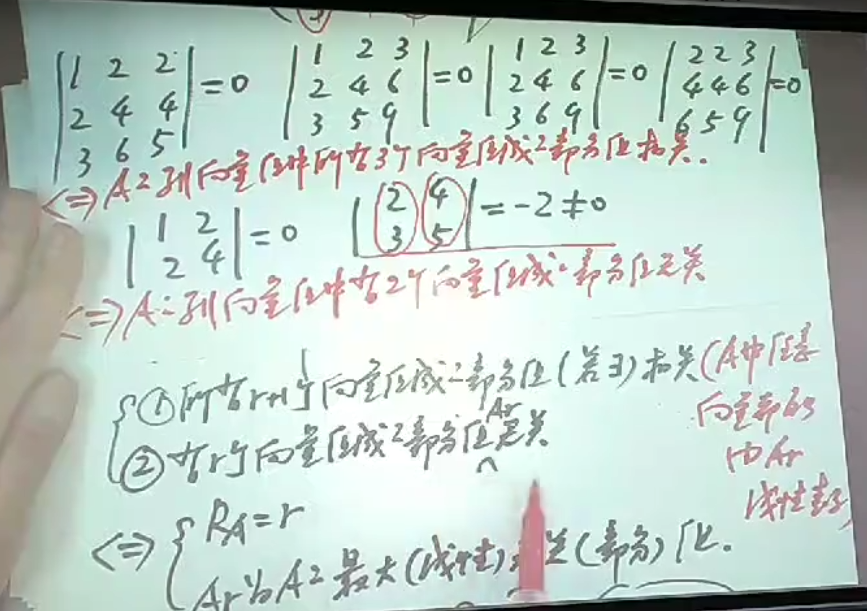 |1 2 2; 2 4 4; 3 6 5| = 0 |1 2 3; 2 4 6; 3 5 9| = 0 |1 2 3; 2 4 6; 3 6 9| = 0 |2 2 3; 4 4 6; 6 5 9| = 0
<=> A之列向量组中所有3个向量组成之部分组相关.
|1 2; 2 4| = 0 |2 4; 3 5| = -2 ≠ 0
<=> A之列向量组中有2个向量组成之部分组无关
① 所有r+1个向量组成之部分组(若∃)相关(A中任意
向量都可
由Ar
线性表示)
② 有r个向量组成之部分组Ar无关
<=> { RA = r
Ar为A之最大(线性)无关(部分)组.